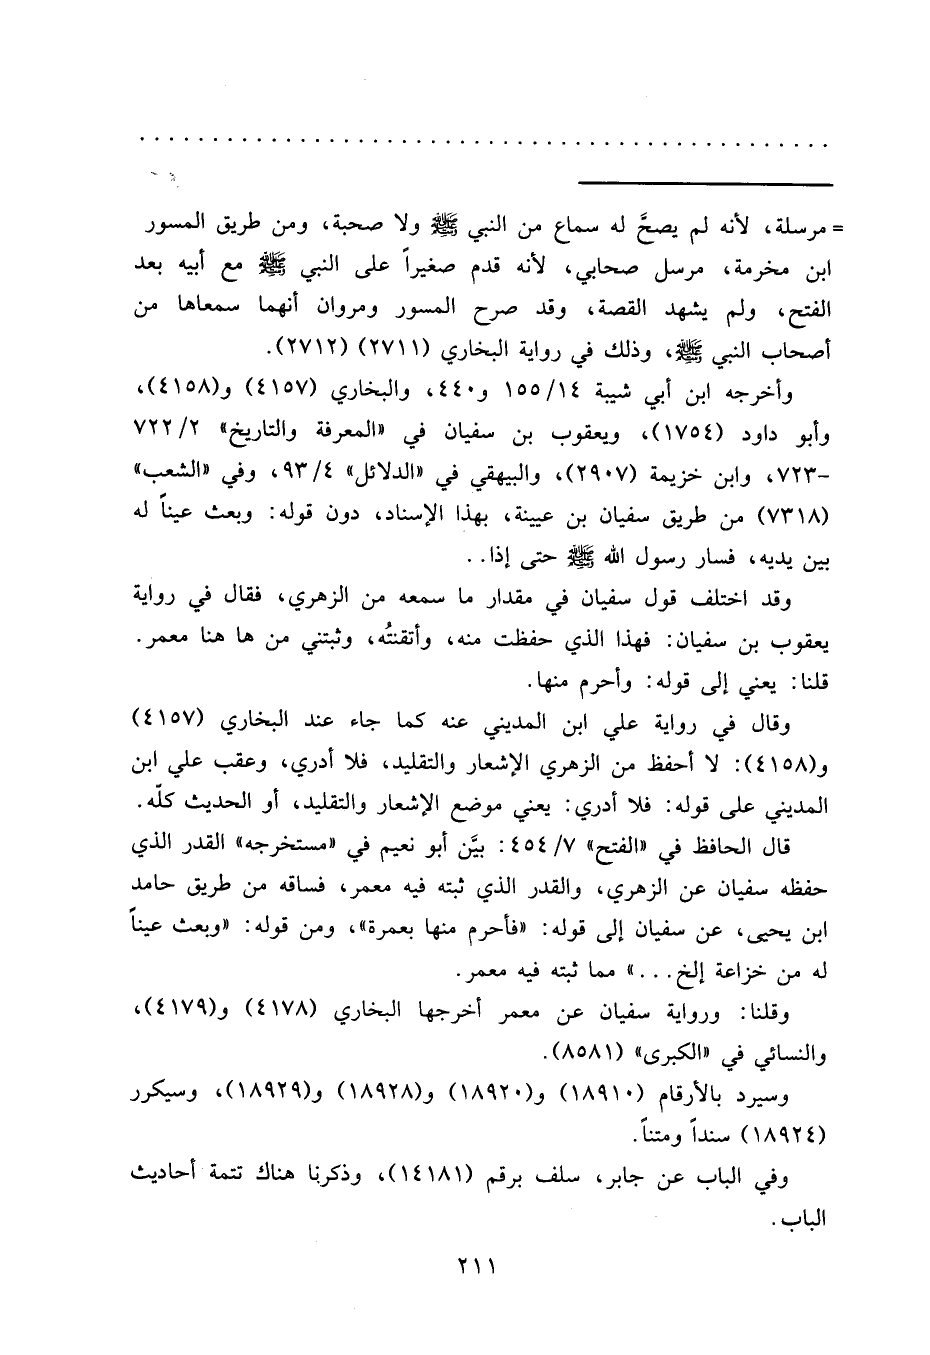 . . . . . . . . . . . . . . . . . . . . . . . . . . . . . . . . . . . . . . . .
= مرسلة، لأنه لم يصحَّ له سماع من النبي ﷺ ولا صحبة، ومن طريق المسور
ابن مخرمة، مرسل صحابي، لأنه قدم صغيراً على النبي ﷺ مع أبيه بعد
الفتح، ولم يشهد القصة، وقد صرح المسور ومروان أنهما سمعاها من
أصحاب النبي ﷺ، وذلك في رواية البخاري (٢٧١١) (٢٧١٢).
وأخرجه ابن أبي شيبة ١٤/١٥٥ و٤٤٠، والبخاري (٤١٥٧) و(٤١٥٨)،
وأبو داود (١٧٥٤)، ويعقوب بن سفيان في «المعرفة والتاريخ» ٢/٧٢٢
-٧٢٣، وابن خزيمة (٢٩٠٧)، والبيهقي في «الدلائل» ٤/٩٣، وفي «الشعب»
(٧٣١٨) من طريق سفيان بن عيينة، بهذا الإسناد، دون قوله: وبعث عيناً له
بين يديه، فسار رسول الله ﷺ حتى إذا..
وقد اختلف قول سفيان في مقدار ما سمعه من الزهري، فقال في رواية
يعقوب بن سفيان: فهذا الذي حفظت منه، وأتقنتُه، وثبتني من ها هنا معمر.
قلنا: يعني إلى قوله: وأحرم منها.
وقال في رواية علي ابن المديني عنه كما جاء عند البخاري (٤١٥٧)
و(٤١٥٨): لا أحفظ من الزهري الإشعار والتقليد، فلا أدري، وعقب علي ابن
المديني على قوله: فلا أدري: يعني موضع الإشعار والتقليد، أو الحديث كلّه.
قال الحافظ في «الفتح» ٧/٤٥٤: بيَّن أبو نعيم في «مستخرجه» القدر الذي
حفظه سفيان عن الزهري، والقدر الذي ثبته فيه معمر، فساقه من طريق حامد
ابن يحيى، عن سفيان إلى قوله: «فأحرم منها بعمرة»، ومن قوله: «وبعث عيناً
له من خزاعة إلخ...» مما ثبته فيه معمر.
وقلنا: ورواية سفيان عن معمر أخرجها البخاري (٤١٧٨) و(٤١٧٩)،
والنسائي في «الكبرى» (٨٥٨١).
وسيرد بالأرقام (١٨٩١٠) و(١٨٩٢٠) و(١٨٩٢٨) و(١٨٩٢٩)، وسيكرر
(١٨٩٢٤) سنداً ومتناً.
وفي الباب عن جابر، سلف برقم (١٤١٨١)، وذكرنا هناك تتمة أحاديث
الباب.
٢١١